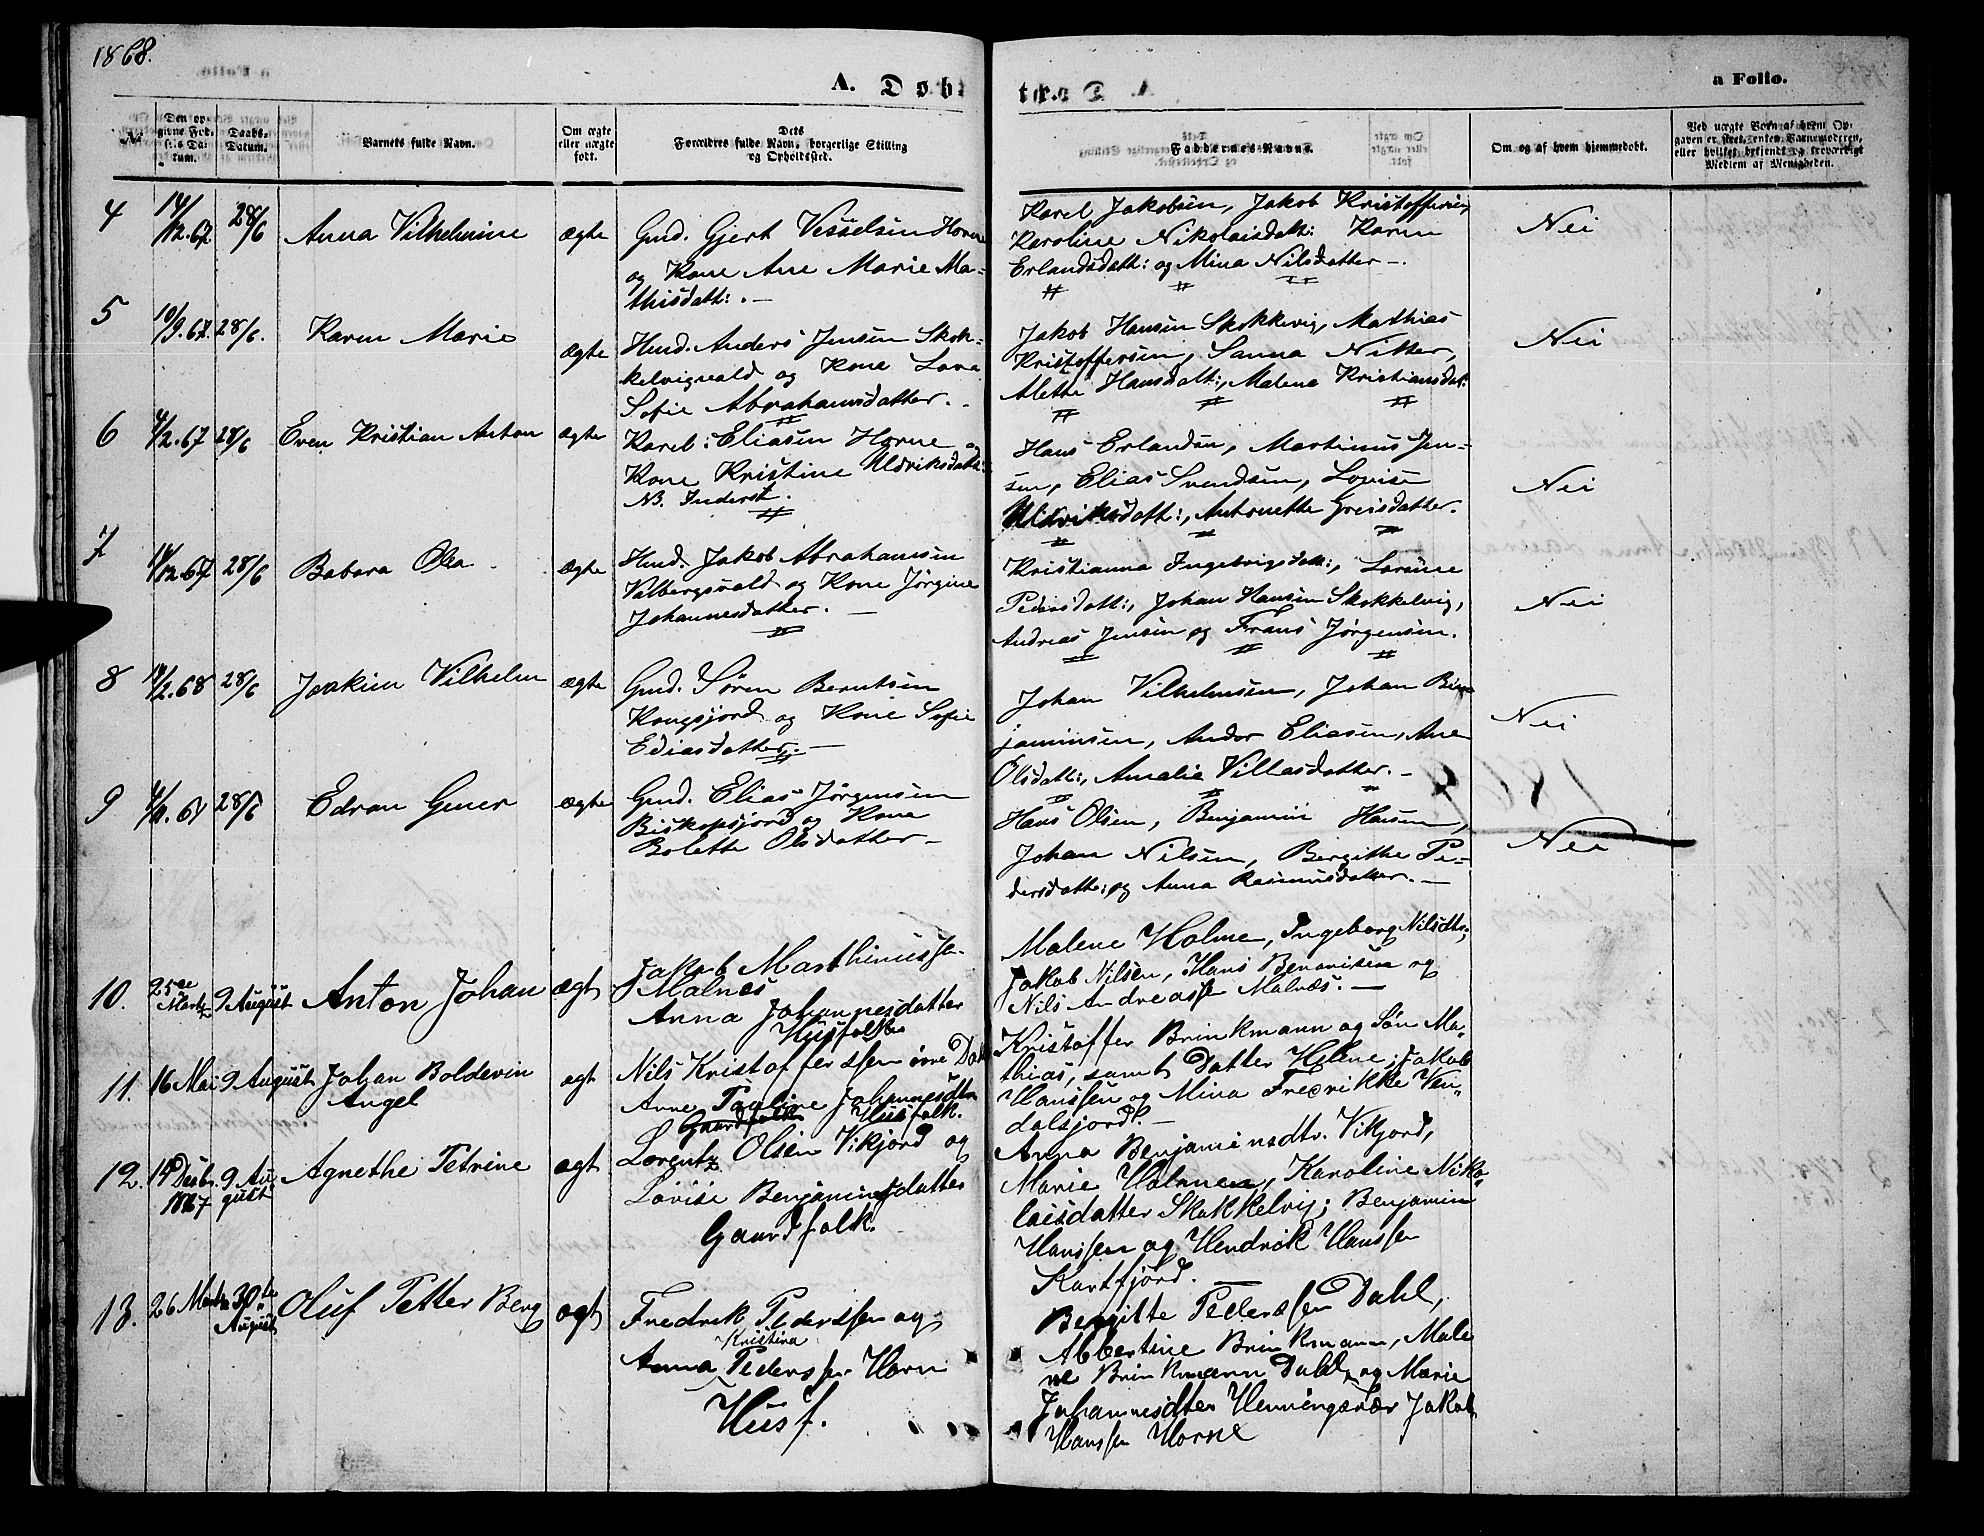 1868.
A. Døbte.
a Folio.
No.
Den opgivne Fødsels Datum.
Daabs-Datum.
Barnets fulde Navn.
Om ægte eller uægte født.
Forældres fulde Navn, borgerlige Stilling og Opholdsted.
Faddernes Navne.
Om og af hvem hjemmedøbt.
4 14/12.67. 28/6 Anna Vilhelmine ægte
Gmd. Gjert Vesselsen Horne
og Kone Ane Marie Ma=
thisdatt: . —
Karel Jakobsen, Jakob Kristoffersen,
Karoline Nikolaisdatt: Karen
Erlandsdatt: og Mina Nilsdatter —.
Nei
5 10/9.67. 28/6. Karen Marie ægte
Hmd. Anders Jensen Skok=
kelvigvald og Kone Lova
Sofie Abrahamsdatter. -
Jakob Hansen Skokkevig, Mathias
Kristoffersen, Sanna Nitter,
Alette Hansdatt:, Malena Kristiansdat:
Nei
6 4/2.67 28/6 Even Kristian Anton ægte
Karel: Eliasen Horne og
Kone Kristine Uldriksdatt:
NB. Inderst.
Hans Erlandsen, Martinus Jen=
sen, Elias Svendsen, Lovise
Uldriksdatt:, Antonette Greisdatter.
Nei
7 18/12.67 28/6 Babara Olea . ægte
Hmd. Jakob Abrahamsen
Valbergsvald og Kone Jørgine
Johannesdatter. —
Kristianna Ingebrigsdatt:, Lorense
Pedersdatt:, Johan Hansen Skokkelvig,
Andreas Jensen og Frans Jørgensen.
Nei
8 14/2.68 28/6 Joakim Vilhelm ægte
Gmd. Søren Berntsen
Kongsjord og Kone Sofie
Ediasdatter. —
Johan Vilhelmsen, Johan Ben=
jaminsen, Andor Eliasen, Ane
Olsdatt:, Amalie Villasdatter. —
Nei
9 28/6 Edvan Gener ægte
Gmd. Elias Jørgensen
Biskopsjord og Kone
Bolette Olsdatter —
Hans Olsen, Benjamin Hansen,
Johan Nilsen, Bergithe Pe=
dersdatt: og Anna Rasmusdatter. —
Nei
10. 25de Marts 9 August Anton Johan ægt
Jakob Marthinussen
Malnes
Anna Johannesdatter
Husfolk
Malene Holme, Ingeborg Nilsdtr,
Jakob Nilsen, Hans Benonisen og
Nils Andreassen Malnes. —
11. 16 Mai 9 August Johan Boldevin
Angel ægt
Nils Kristofferssen øvre Dal
Anne Pauline Johannesdtr
Gaardfolk Husfolk.
Kristoffer Brinkmann og Søn Ma=
thias, samt Datter Helene, Jakob
Hanssen og Mina Fredrikke Ven=
dalsjord. —
12. 14 Desbr. 1867 9 August Agnethe Petrine ægt
Lorentz Olsen Vikjord og
Lovise Benjaminsdatter
Gaardfolk.
Anna Benjaminsdtr. Vikjord,
Marie Holmen, Karoline Niko=
laisdatter Skokkelvig; Benjamin
Hanssen og Hendrik Hanssen
Kartfjord. —
13. 26 Marts 30te August Oluf Petter Berg ægt
Fredrik Pederssen og
Kristina
Anna Pederssen Horn
Husf.
Bergitte Pederssen Dahl,
Abbertine Brinkmann, Male
ne Brinkmann Dahl, og Marie
Johannesdter Henningsvær Jakob
Hanssen Horne